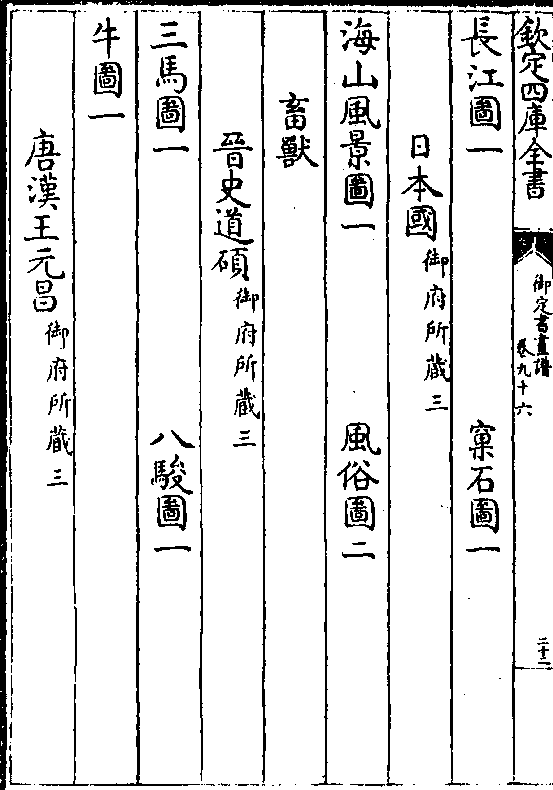 欽定四庫全書
御定書畫譜
卷九十六
二十二
長江圖一 窠石圖一
日本國御府所藏三
海山風景圖一 風俗圖二
畜獸
晉史道碩御府所藏三
三馬圖一 八駿圖一
牛圖一
唐漢王元昌御府所藏三